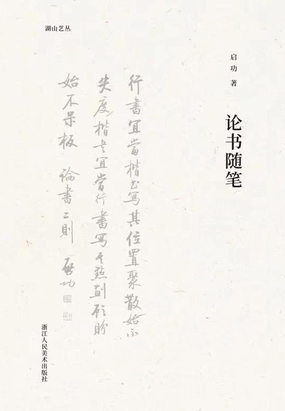 湖山艺丛
启功 著
论书随笔
行书宜当楷书写其位置聚散始不
失度楷书宜当行书写其点画顾盼
始不呆板 论书二则 启功
浙江人民美术出版社